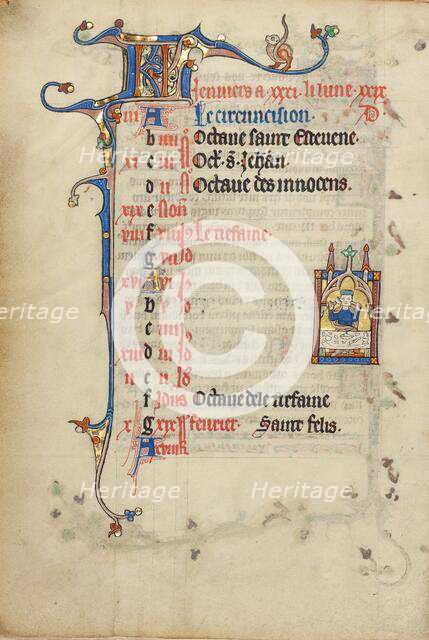 KL Jenuiers a .xxxi. li lune .xxx.
iii A Le circuncision. D
b iiii N Octaue saint Esteuene.
xi c iii N Oct. S. Jehan.
d ii N Octaue des innocens.
xix e Non
viii f viii Id Le tiefaine
g vii Id
xvi A vi Id
v b v Id
c iiii Id
xiii d iii Id
ii e ii Id
f Idus Octaue dele tiefaine
x g xix feurer. Saint felis.
A
Heritage
Heritage
Heritage
Heritage
Heritage
Heritage
Heritage
©